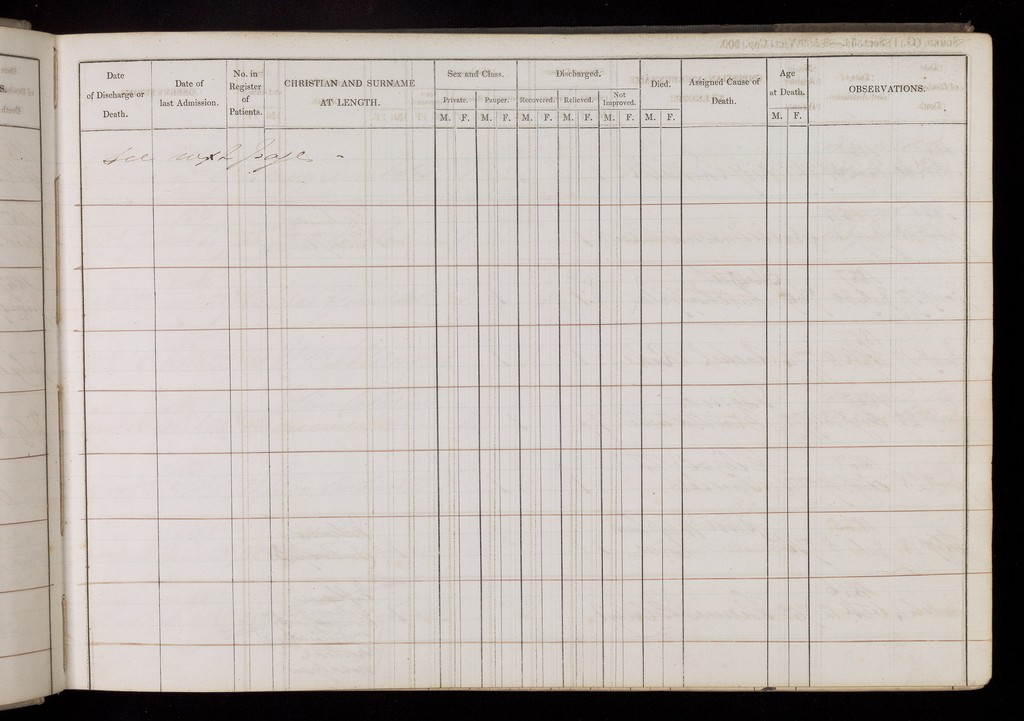 Date
of Discharge or
Death.
Date of
last Admission.
No. in
Register
of
Patients.
CHRISTIAN AND SURNAME
AT LENGTH.
Sex and Class.
Private. Pauper.
M. F. M. F.
Discharged.
Recovered. Relieved. Not Improved.
M. F. M. F. M. F.
Died.
M. F.
Assigned Cause of
Death.
Age
at Death.
M. F.
OBSERVATIONS.
See next page -